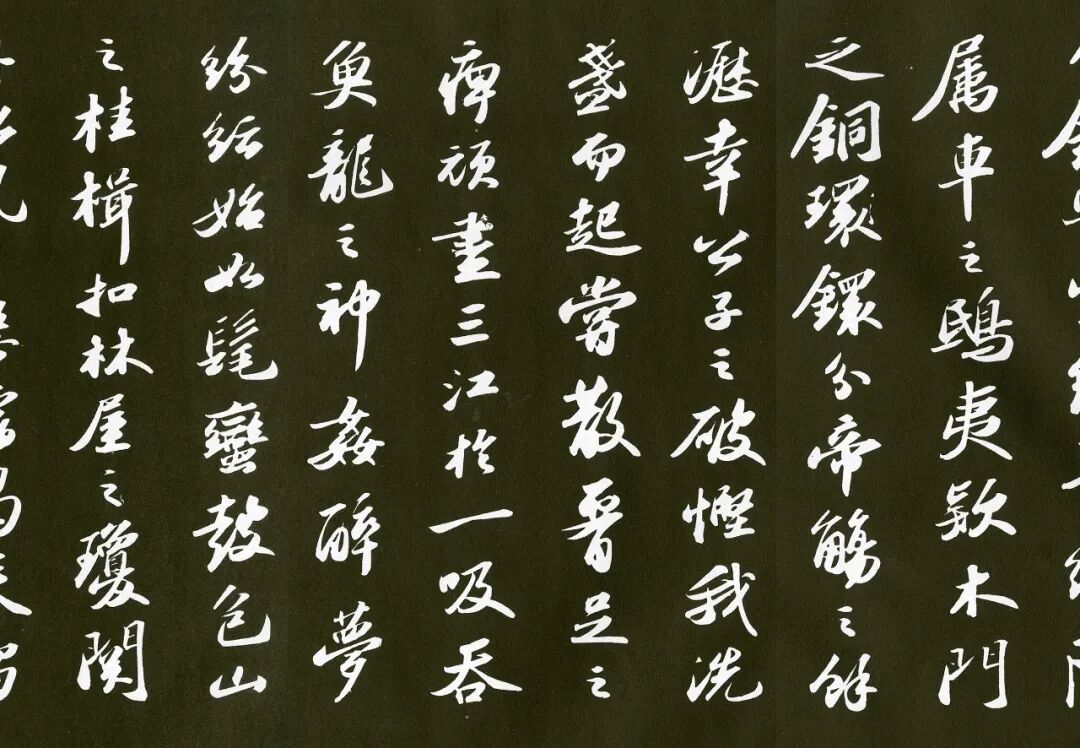 属車之鴟夷款木門
之銅環鐶分帝觴之餘
瀝幸公子之破慳我洗
盞而起嘗散足之
痺頑盡三江於一吸吞
魚龍之神姦醉夢
紛紜始如髦蠻鼓包山
之桂楫扣林屋之瓊関